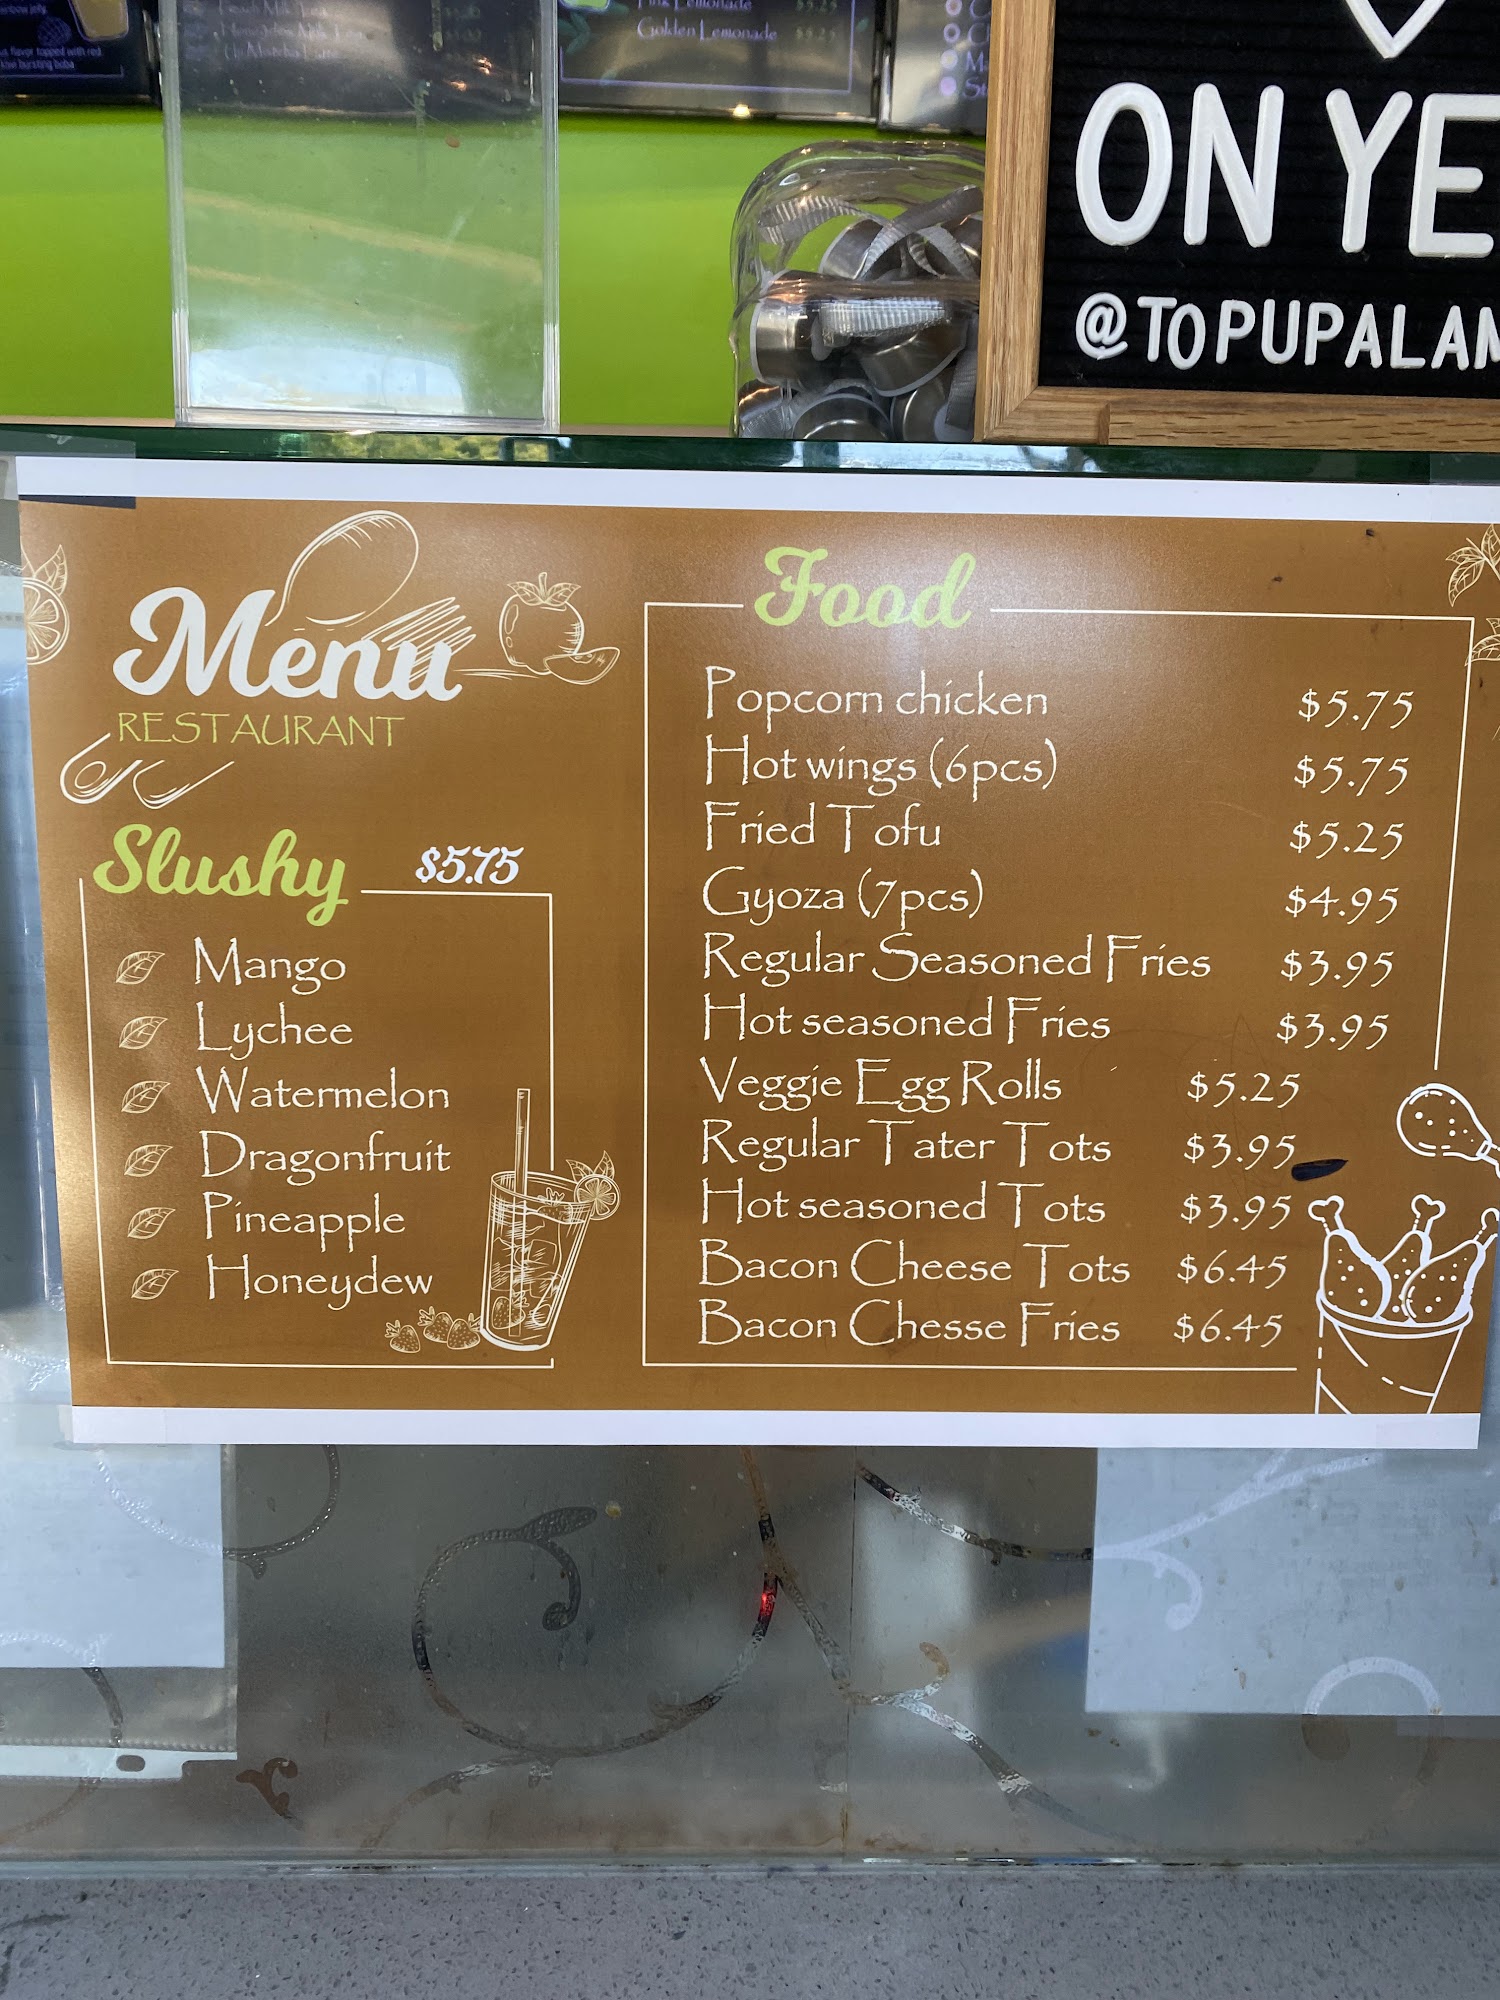 flavor topped with red
kiwi bursting boba
Peach Milk Tea
Honeydew Milk Tea
Uji Matcha Latte
Pink Lemonade $5.25
Golden Lemonade $5.25
ON YE
@TOPUPALAM
Menu
RESTAURANT
Slushy $5.75
Mango
Lychee
Watermelon
Dragonfruit
Pineapple
Honeydew
Food
Popcorn chicken $5.75
Hot wings (6pcs) $5.75
Fried Tofu $5.25
Gyoza (7pcs) $4.95
Regular Seasoned Fries $3.95
Hot seasoned Fries $3.95
Veggie Egg Rolls $5.25
Regular Tater Tots $3.95
Hot seasoned Tots $3.95
Bacon Cheese Tots $6.45
Bacon Chesse Fries $6.45